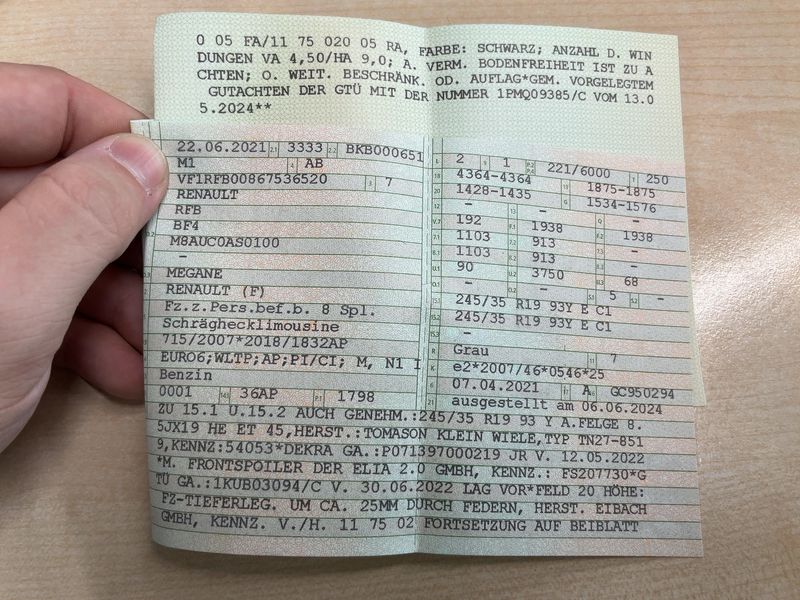 0 05 FA/11 75 020 05 RA, FARBE: SCHWARZ; ANZAHL D. WIN
DUNGEN VA 4,50/HA 9,0; A. VERM. BODENFREIHEIT IST ZU A
CHTEN; O. WEIT. BESCHRÄNK. OD. AUFLAG*GEM. VORGELEGTEM
GUTACHTEN DER GTÜ MIT DER NUMMER 1PMQ09385/C VOM 13.0
5.2024**
22.06.2021 2.1 3333 2.2 BKB000651
M1 4 AB
VF1RFB00867536520 3 7
RENAULT
RFB
BF4
M8AUC0AS0100
-
MEGANE
RENAULT (F)
Fz.z.Pers.bef.b. 8 Spl.
Schräghecklimousine
715/2007*2018/1832AP
EURO6;WLTP;AP;PI/CI; M, N1 I
Benzin
0001 14.1 36AP P.1 1798
L 2 9 1 P.2 P.4 221/6000 T 250
18 4364-4364 19 1875-1875
20 1428-1435 G 1534-1576
12 - 13 - Q -
V.7 192 F.1 1938 F.2 1938
7.1 1103 7.2 913 7.3 -
8.1 1103 8.2 913 8.3 -
U.1 90 U.2 3750 U.3 68
O.1 - O.2 - S.1 5 S.2 -
15.1 245/35 R19 93Y E C1
15.2 245/35 R19 93Y E C1
15.3 -
R Grau 11 7
K e2*2007/46*0546*25
6 07.04.2021 17 A 16 GC950294
21 ausgestellt am 06.06.2024
ZU 15.1 U.15.2 AUCH GENEHM.:245/35 R19 93 Y A.FELGE 8.
5JX19 HE ET 45,HERST.:TOMASON KLEIN WIELE,TYP TN27-851
9,KENNZ:54053*DEKRA GA.:P071397000219 JR V. 12.05.2022
*M. FRONTSPOILER DER ELIA 2.0 GMBH, KENNZ.: FS207730*G
TÜ GA.:1KUB03094/C V. 30.06.2022 LAG VOR*FELD 20 HÖHE:
FZ-TIEFERLEG. UM CA. 25MM DURCH FEDERN, HERST. EIBACH
GMBH, KENNZ. V./H. 11 75 02 FORTSETZUNG AUF BEIBLATT